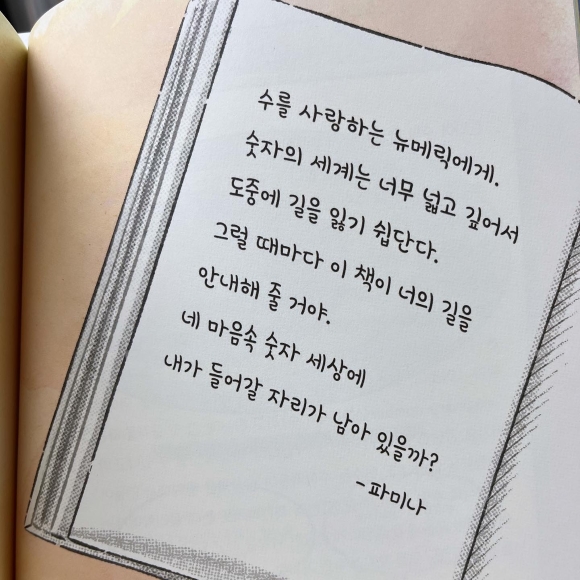 수를 사랑하는 뉴메릭에게.
숫자의 세계는 너무 넓고 깊어서
도중에 길을 잃기 쉽단다.
그럴 때마다 이 책이 너의 길을
안내해 줄 거야.
네 마음속 숫자 세상에
내가 들어갈 자리가 남아 있을까?
-파미나